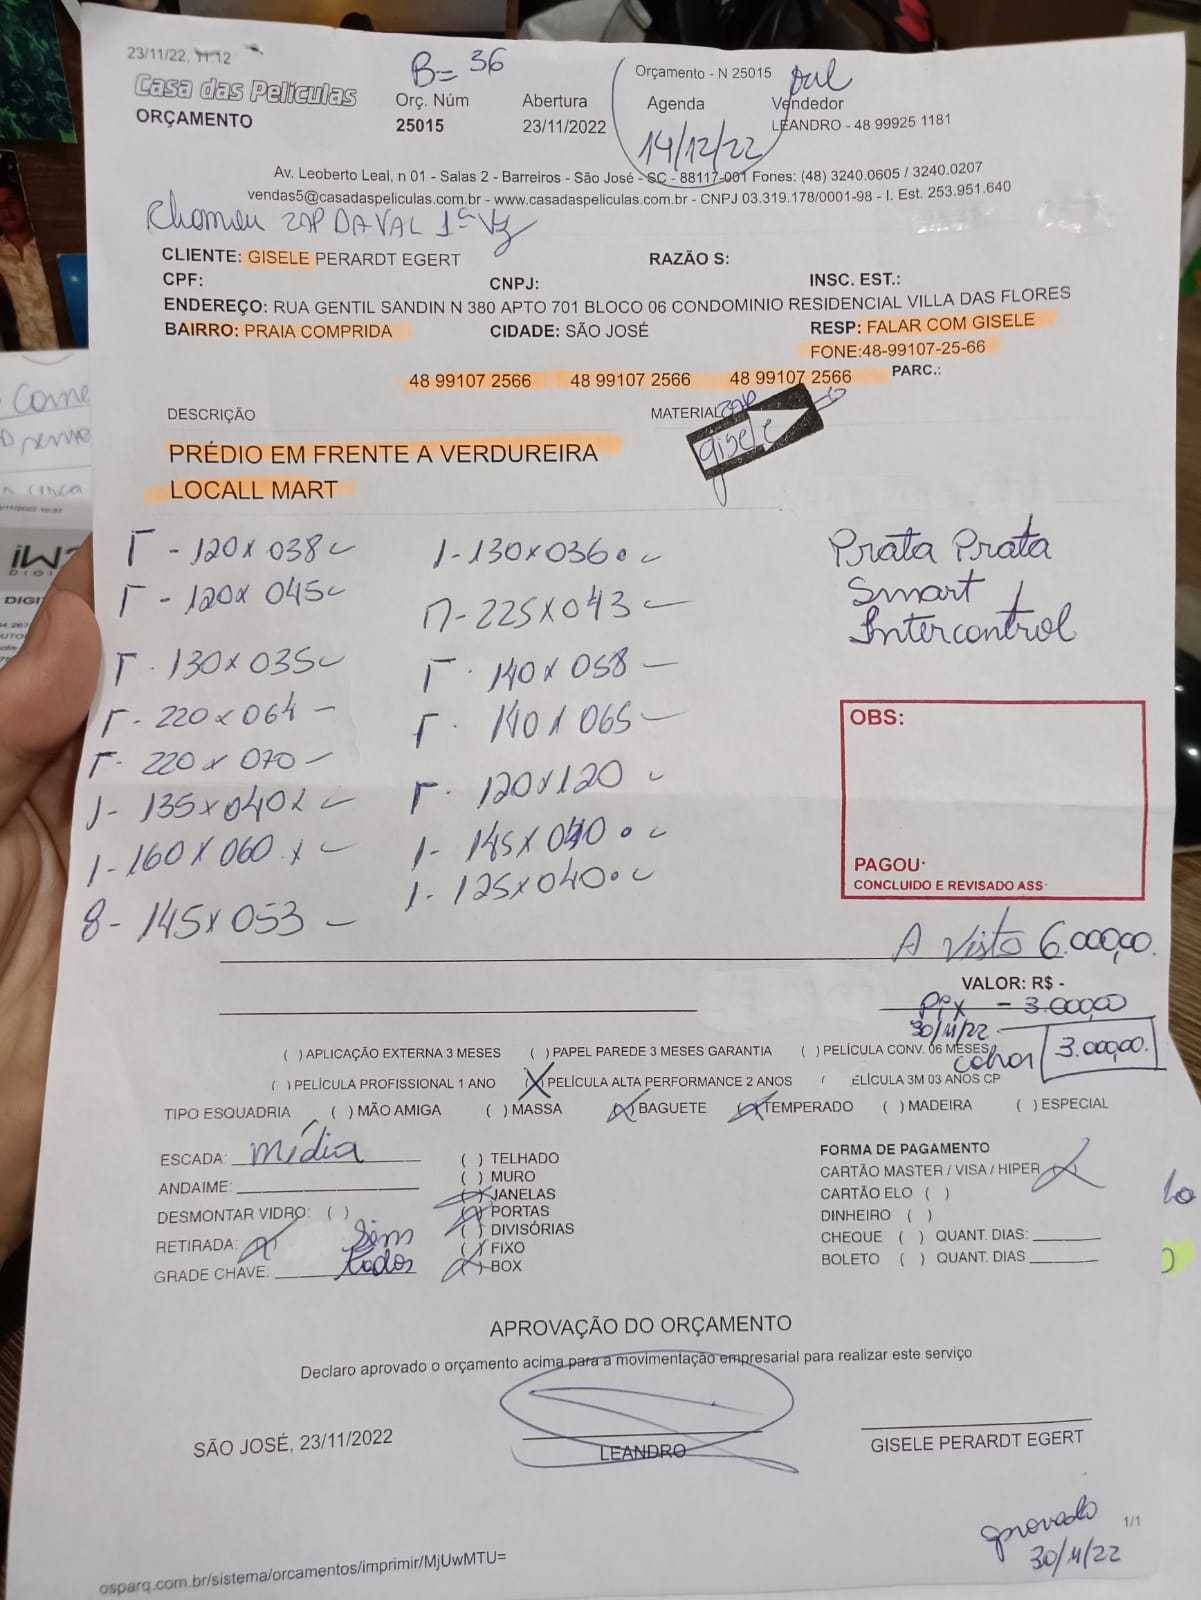 23/11/22, 11:12
B= 36
Orçamento - N 25015
Casa das Películas
ORÇAMENTO
Orç. Núm
25015
Abertura
23/11/2022
Agenda
14/12/22
Vendedor
LEANDRO - 48 99925 1181
Av. Leoberto Leal, n 01 - Salas 2 - Barreiros - São José - SC - 88117-001 Fones: (48) 3240.0605 / 3240.0207
vendas5@casadaspeliculas.com.br - www.casadaspeliculas.com.br - CNPJ 03.319.178/0001-98 - I. Est. 253.951.640
ZAP DAVAL 1ª Vz
CLIENTE: GISELE PERARDT EGERT RAZÃO S:
CPF: CNPJ: INSC. EST.:
ENDEREÇO: RUA GENTIL SANDIN N 380 APTO 701 BLOCO 06 CONDOMINIO RESIDENCIAL VILLA DAS FLORES
BAIRRO: PRAIA COMPRIDA CIDADE: SÃO JOSÉ RESP: FALAR COM GISELE
FONE:48-99107-25-66
48 99107 2566 48 99107 2566 48 99107 2566 PARC.:
DESCRIÇÃO MATERIAL
gisele
PRÉDIO EM FRENTE A VERDUREIRA
LOCALL MART
Γ - 120x 038
Γ - 120x 045
Γ - 130x 035
Γ - 220x 064 -
Γ - 220x 070 -
1- 135x040x
1- 160x060 x
8- 145x053 -
1- 130x036.
Π- 225x043
Γ - 140x 058 -
Γ - 140x065
Γ - 120x120
1- 145x040.
1- 125x040.
Prata Prata
Smart /
Intercontrol
OBS:
PAGOU:
CONCLUIDO E REVISADO ASS:
A Visto 6.000,00.
VALOR: R$ -
Pix - 3.000,00
30/11/22
3.000,00.
( ) APLICAÇÃO EXTERNA 3 MESES ( ) PAPEL PAREDE 3 MESES GARANTIA ( ) PELÍCULA CONV. 06 MESES
( ) PELÍCULA PROFISSIONAL 1 ANO (X) PELÍCULA ALTA PERFORMANCE 2 ANOS ( ELÍCULA 3M 03 ANOS CP
TIPO ESQUADRIA ( ) MÃO AMIGA ( ) MASSA (X) BAGUETE (X) TEMPERADO ( ) MADEIRA ( ) ESPECIAL
ESCADA: média
ANDAIME:
DESMONTAR VIDRO: ( )
RETIRADA: (X) Sim
GRADE CHAVE: todos
( ) TELHADO
( ) MURO
(X) JANELAS
(X) PORTAS
( ) DIVISÓRIAS
(X) FIXO
(X) BOX
FORMA DE PAGAMENTO
CARTÃO MASTER / VISA / HIPER (X)
CARTÃO ELO ( )
DINHEIRO ( )
CHEQUE ( ) QUANT. DIAS:
BOLETO ( ) QUANT. DIAS
APROVAÇÃO DO ORÇAMENTO
Declaro aprovado o orçamento acima para a movimentação empresarial para realizar este serviço
SÃO JOSÉ, 23/11/2022
LEANDRO
GISELE PERARDT EGERT
aprovado
30/11/22
1/1
osparq.com.br/sistema/orcamentos/imprimir/MjUwMTU=